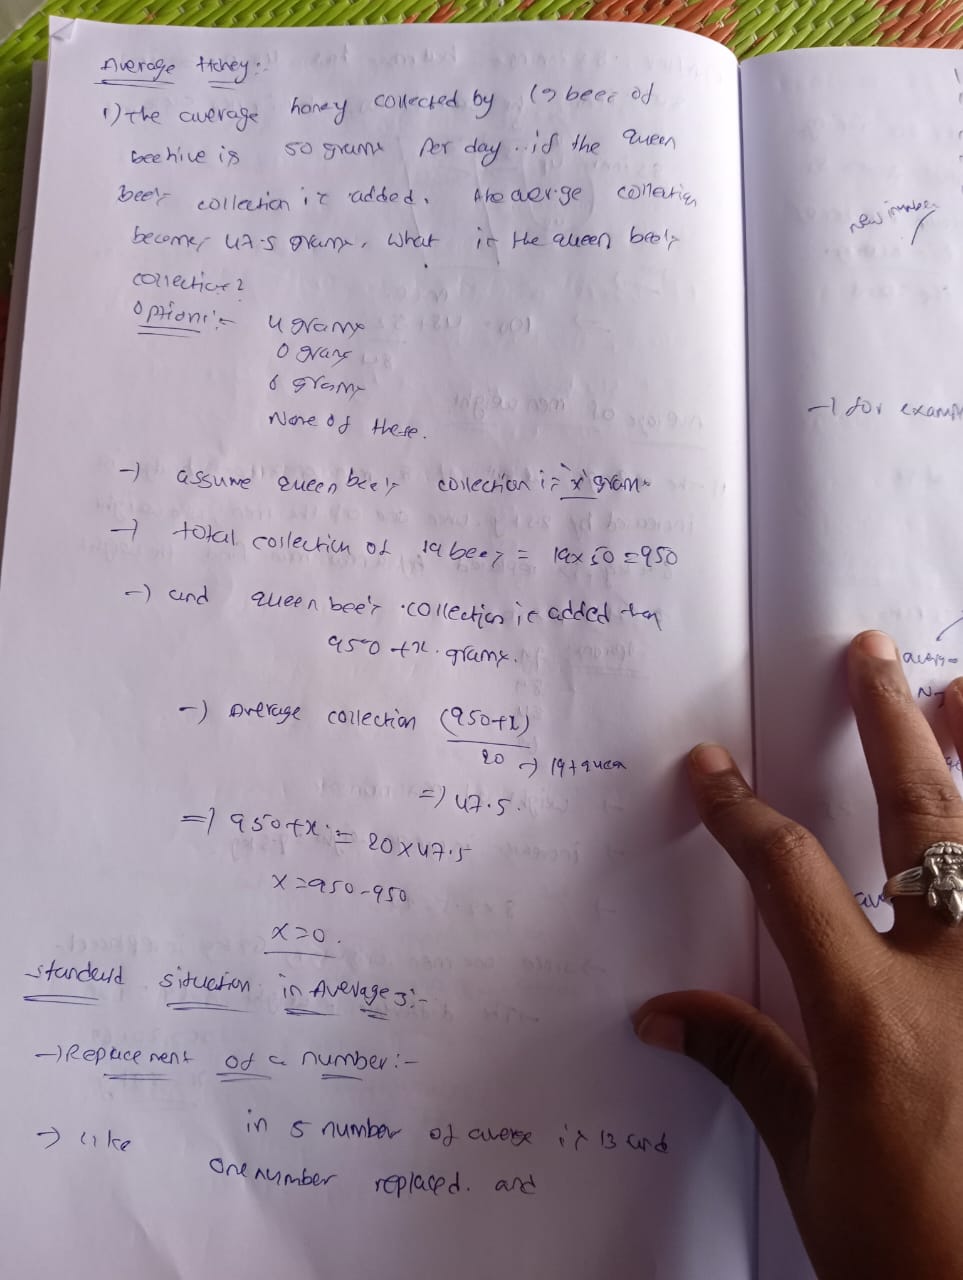 Average Honey:-
1) the average honey collected by 19 bees of
bee hive is 50 grams per day. if the queen
bee's collection is added. the averge collection
becomes 47.5 grams, what is the queen bee's
collection?
Options:- 4 grams
0 grams
6 grams
None of these.
-) assume queen bee's collection is 'x' grams
-) total collection of 19 bees = 19x50=950
-) and queen bee's collection is added then
950+x. grams.
-) Average collection (950+x)
20 → 19+queen
=) 47.5.
=) 950+x = 20x47.5
x=950-950
x=0.
standard situation in Average3:-
→Replacement of a number:-
→ like in 5 number of averge is 13 and
one number replaced. and
new number
→ for examp
averge